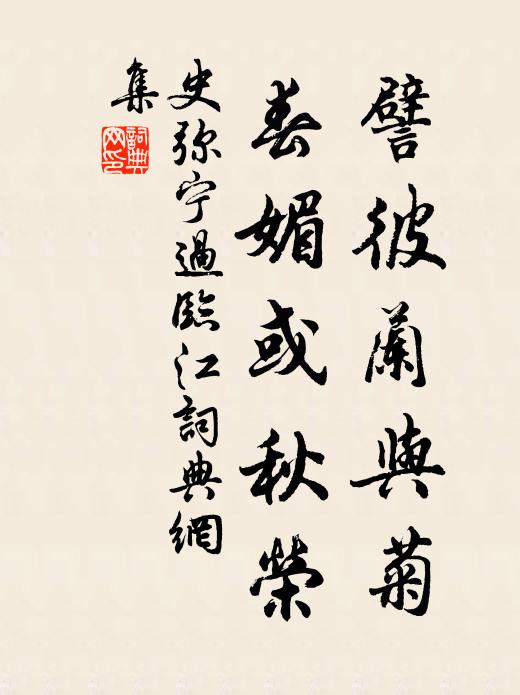 譬彼蘭與菊
春媚或秋榮
史弥宁過臨江詞典網
集
詞典網印